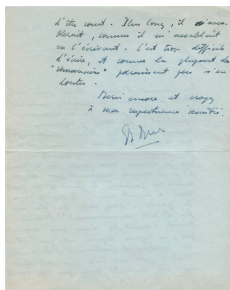 d'être court. Plus long, il m'acca-
blerait, comme il m'accablait
en l'écrivant. C'est très difficile
d'écrire, et comme la plupart des
"romanciers" paraissent peu s'en
douter.
Merci encore et croyez
à mon amitié.